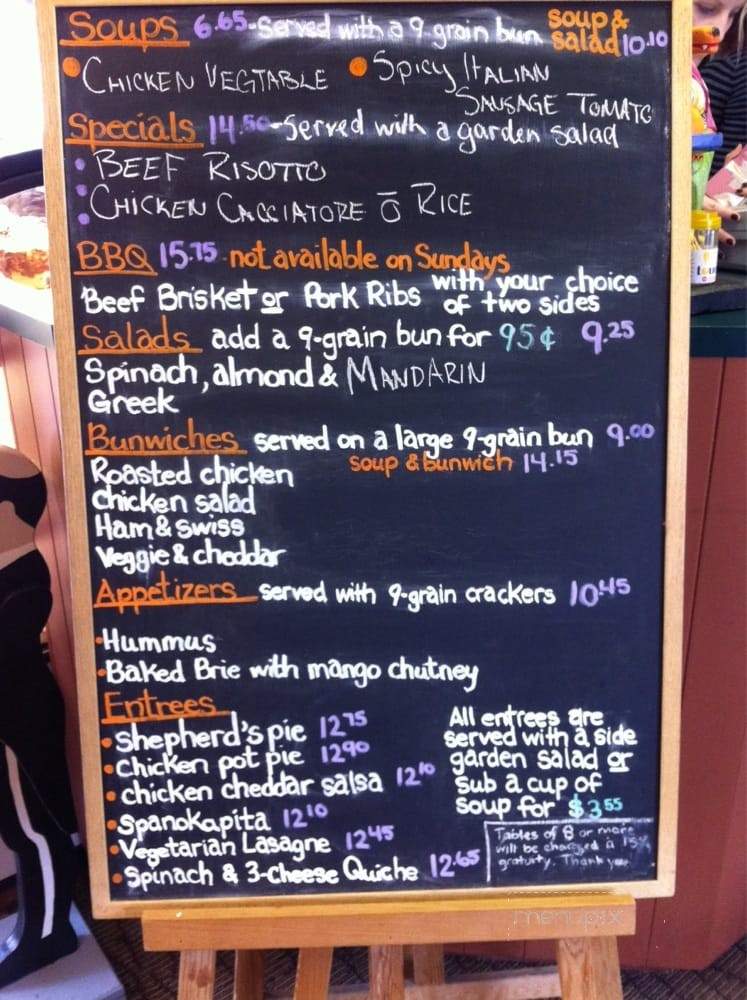 Soups 6.65 - Served with a 9 grain bun soup & salad 10.10
• CHICKEN VEGTABLE • SPICY ITALIAN
SAUSAGE TOMATO
Specials 14.50 - Served with a garden salad
• BEEF RISOTTO
• CHICKEN CACCIATORE c̄ RICE
BBQ 15.75 - not available on Sundays
Beef Brisket or Pork Ribs with your choice
of two sides
Salads add a 9-grain bun for 95¢ 9.25
Spinach, almond & MANDARIN
Greek
Bunwiches served on a large 9-grain bun 9.00
Roasted chicken soup & bunwich 14.15
chicken salad
Ham & swiss
Veggie & cheddar
Appetizers served with 9-grain crackers 10.45
• Hummus
• Baked Brie with mango chutney
Entrees
• Shepherd's pie 12.75
• Chicken pot pie 12.90
• chicken cheddar salsa 12.10
• Spanokapita 12.10
• Vegetarian Lasagne 12.45
• Spinach & 3-cheese Quiche 12.65
All entrees are
served with a side
garden salad or
sub a cup of
soup for $3.55
Tables of 8 or more
will be charged a 15%
gratuity. Thank you
menupix